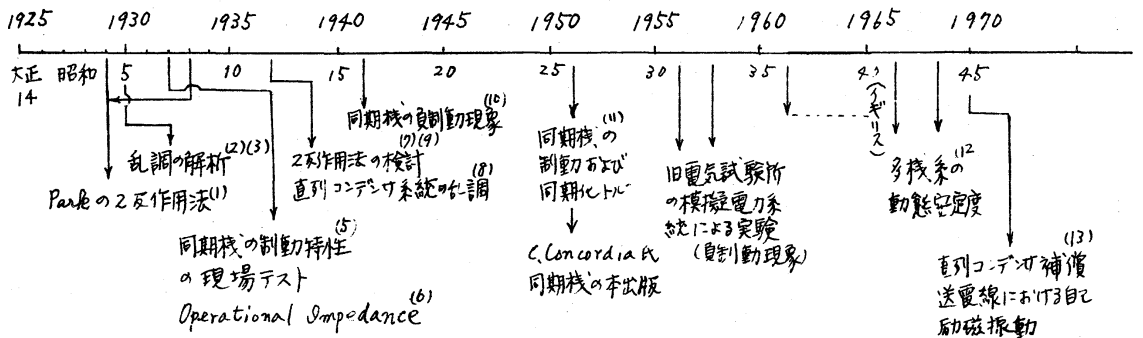 1925 1930 1935 1940 1945 1950 1955 1960 1965 1970
大正 昭和 5 10 15 20 25 30 35 45
14
(イギリス)
乱調の解析(2)(3)
Parkの2反作用法(1)
同期機の制動特性(5)
の現場テスト
Operational Impedance(6)
同期機の負制動現象(10)
2反作用法の検討(7)(9)
直列コンデンサ系統の乱調(8)
同期機の(11)
制動および
同期化トルク
C. Concordia氏
同期機の本出版
旧電気試験所
の模擬電力系
統による実験
(負制動現象)
多機系の(12
動態安定度
(13)
直列コンデンサ補償
送電線における自己
励磁振動